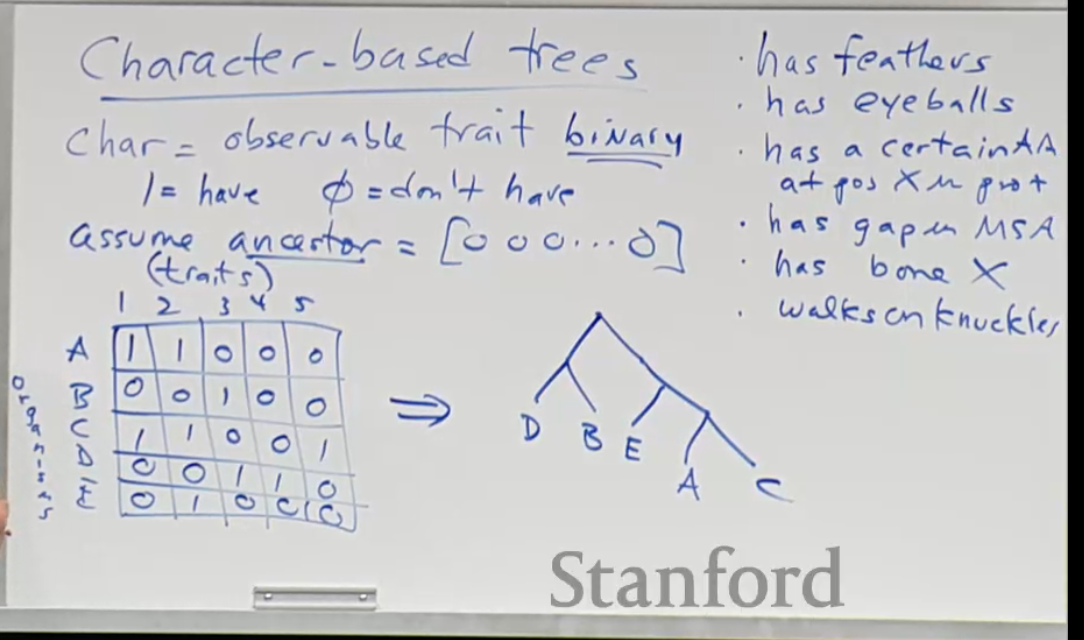 Character-based trees
char = observable trait binary
1 = have ϕ = don't have
assume ancestor = [0 0 0 ... 0]
(traits)
1 2 3 4 5
A 1 1 0 0 0
B 0 0 1 0 0
C 1 1 0 0 1
D 0 0 1 1 0
E 0 1 0 0 0
organisms
⇒
D B E
A C
· has feathers
· has eyeballs
· has a certain AA
at pos X in prot
· has gap in MSA
· has bone X
· walks on knuckles
Stanford